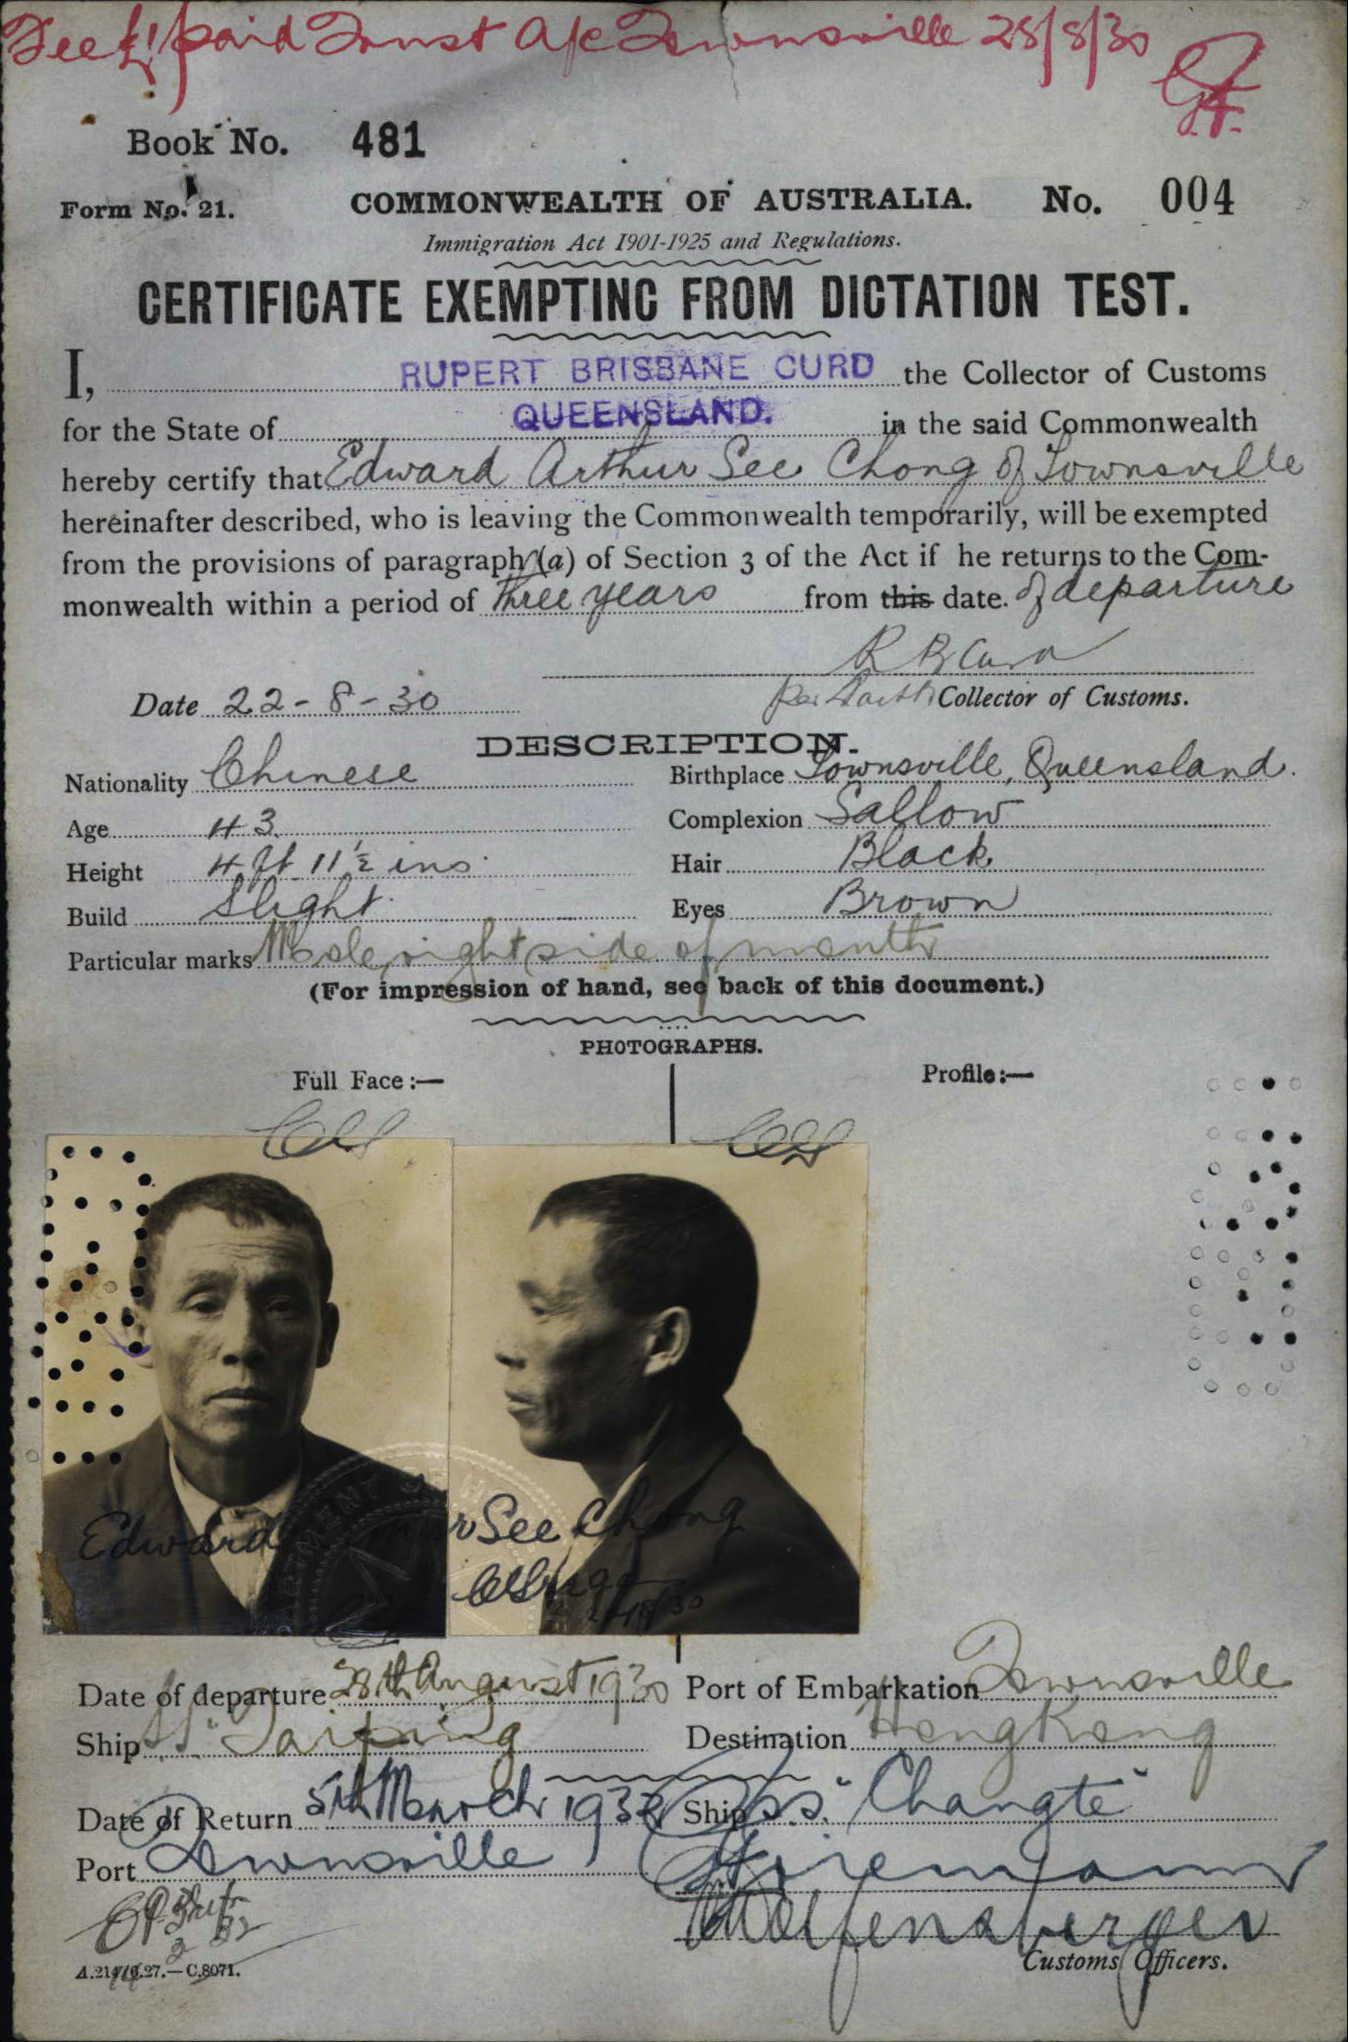 Fee £1 paid Trust A/c Townsville 28/8/30
Book No. 481
Form No. 21. COMMONWEALTH OF AUSTRALIA. No. 004
Immigration Act 1901-1925 and Regulations.
CERTIFICATE EXEMPTING FROM DICTATION TEST.
I, RUPERT BRISBANE CURD the Collector of Customs
for the State of QUEENSLAND. in the said Commonwealth
hereby certify that Edward Arthur See Chong of Townsville
hereinafter described, who is leaving the Commonwealth temporarily, will be exempted
from the provisions of paragraph (a) of Section 3 of the Act if he returns to the Com-
monwealth within a period of three years from this date. of departure
R B Curd
per Collector of Customs.
Date 22-8-30
DESCRIPTION.
Nationality Chinese Birthplace Townsville, Queensland.
Age 43 Complexion Sallow
Height 4 ft 11½ ins. Hair Black
Build Slight. Eyes Brown
Particular marks Mole right side of mouth
(For impression of hand, see back of this document.)
PHOTOGRAPHS.
Full Face:— Profile:—
Edward See Chong
Date of departure 28th August 1930 Port of Embarkation Townsville
Ship SS. "Taiping Destination Hong Kong
Date of Return 5th March 1932 Ship S.S. "Changte"
Port Townsville
Customs Officers.
A.214/6.27.—C.8071.